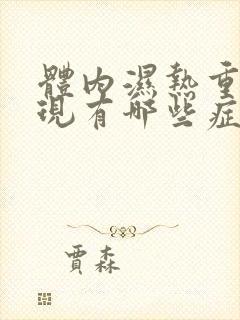 體內濕熱重
現有哪些症
賈森